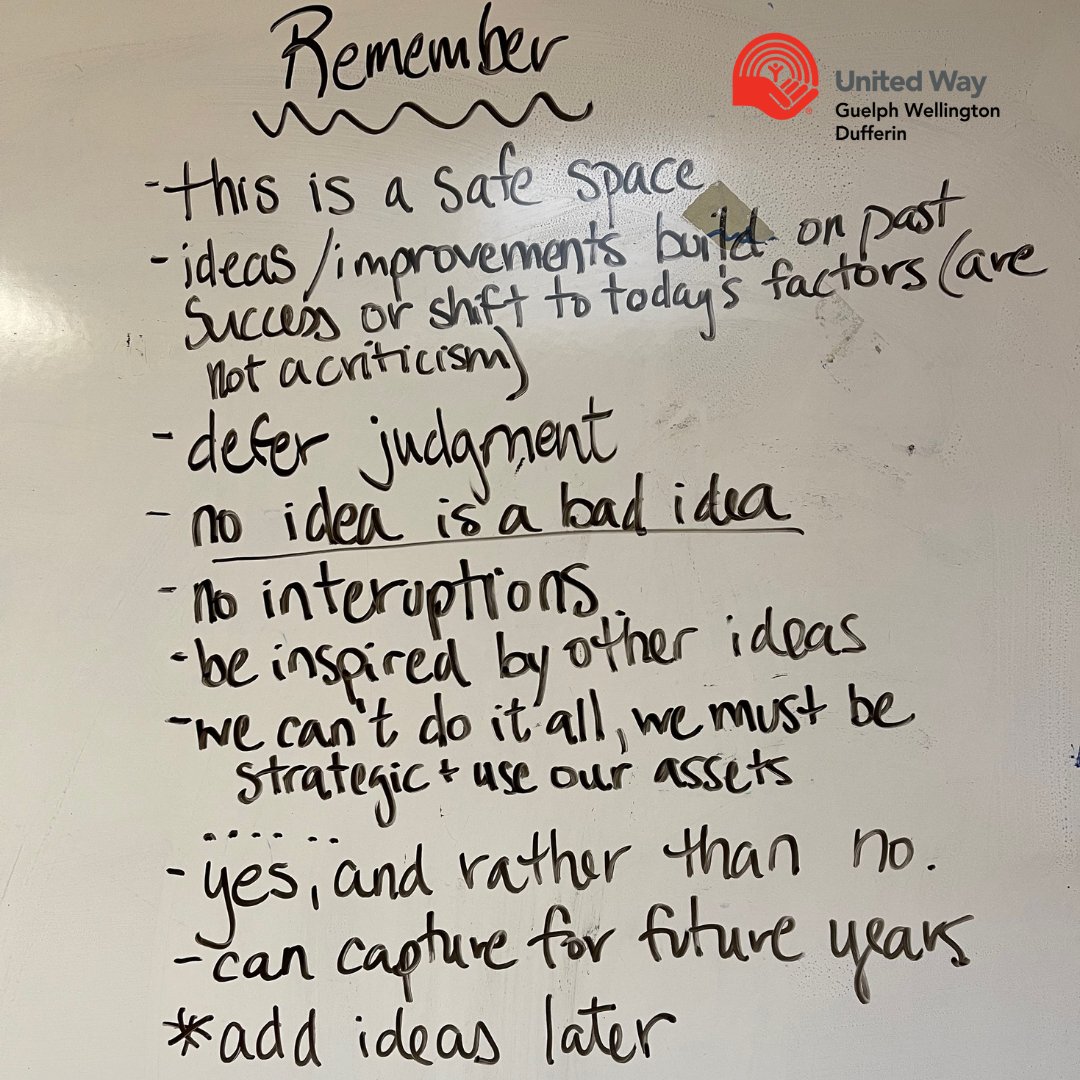 Remember
United Way
Guelph Wellington
Dufferin
- this is a safe space
- ideas/improvements build on past
success or shift to today's factors (are
not a criticism)
- defer judgment
- no idea is a bad idea
- no interuptions
- be inspired by other ideas
- we can't do it all, we must be
strategic + use our assets
......
- yes, and rather than no.
- can capture for future years
*add ideas later